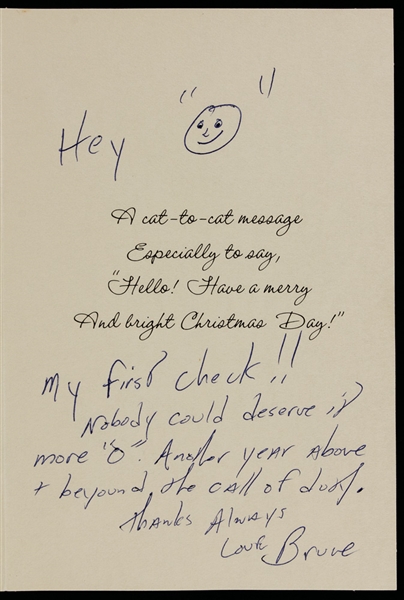 Hey " "
A cat-to-cat message
Especially to say,
"Hello! Have a merry
And bright Christmas Day!"
My first check!!
Nobody could deserve it
more "O". Another year above
+ beyound the call of duty.
Thanks Always
Love Bruce